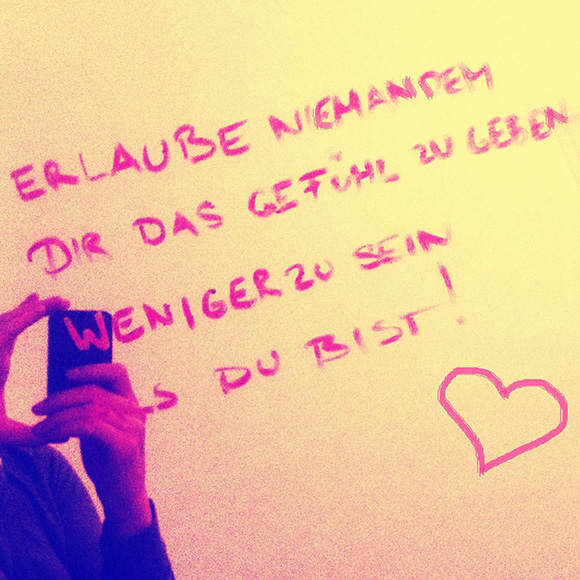 ERLAUBE NIEMANDEM
DIR DAS GEFÜHL ZU GEBEN
WENIGER ZU SEIN
LS DU BIST!